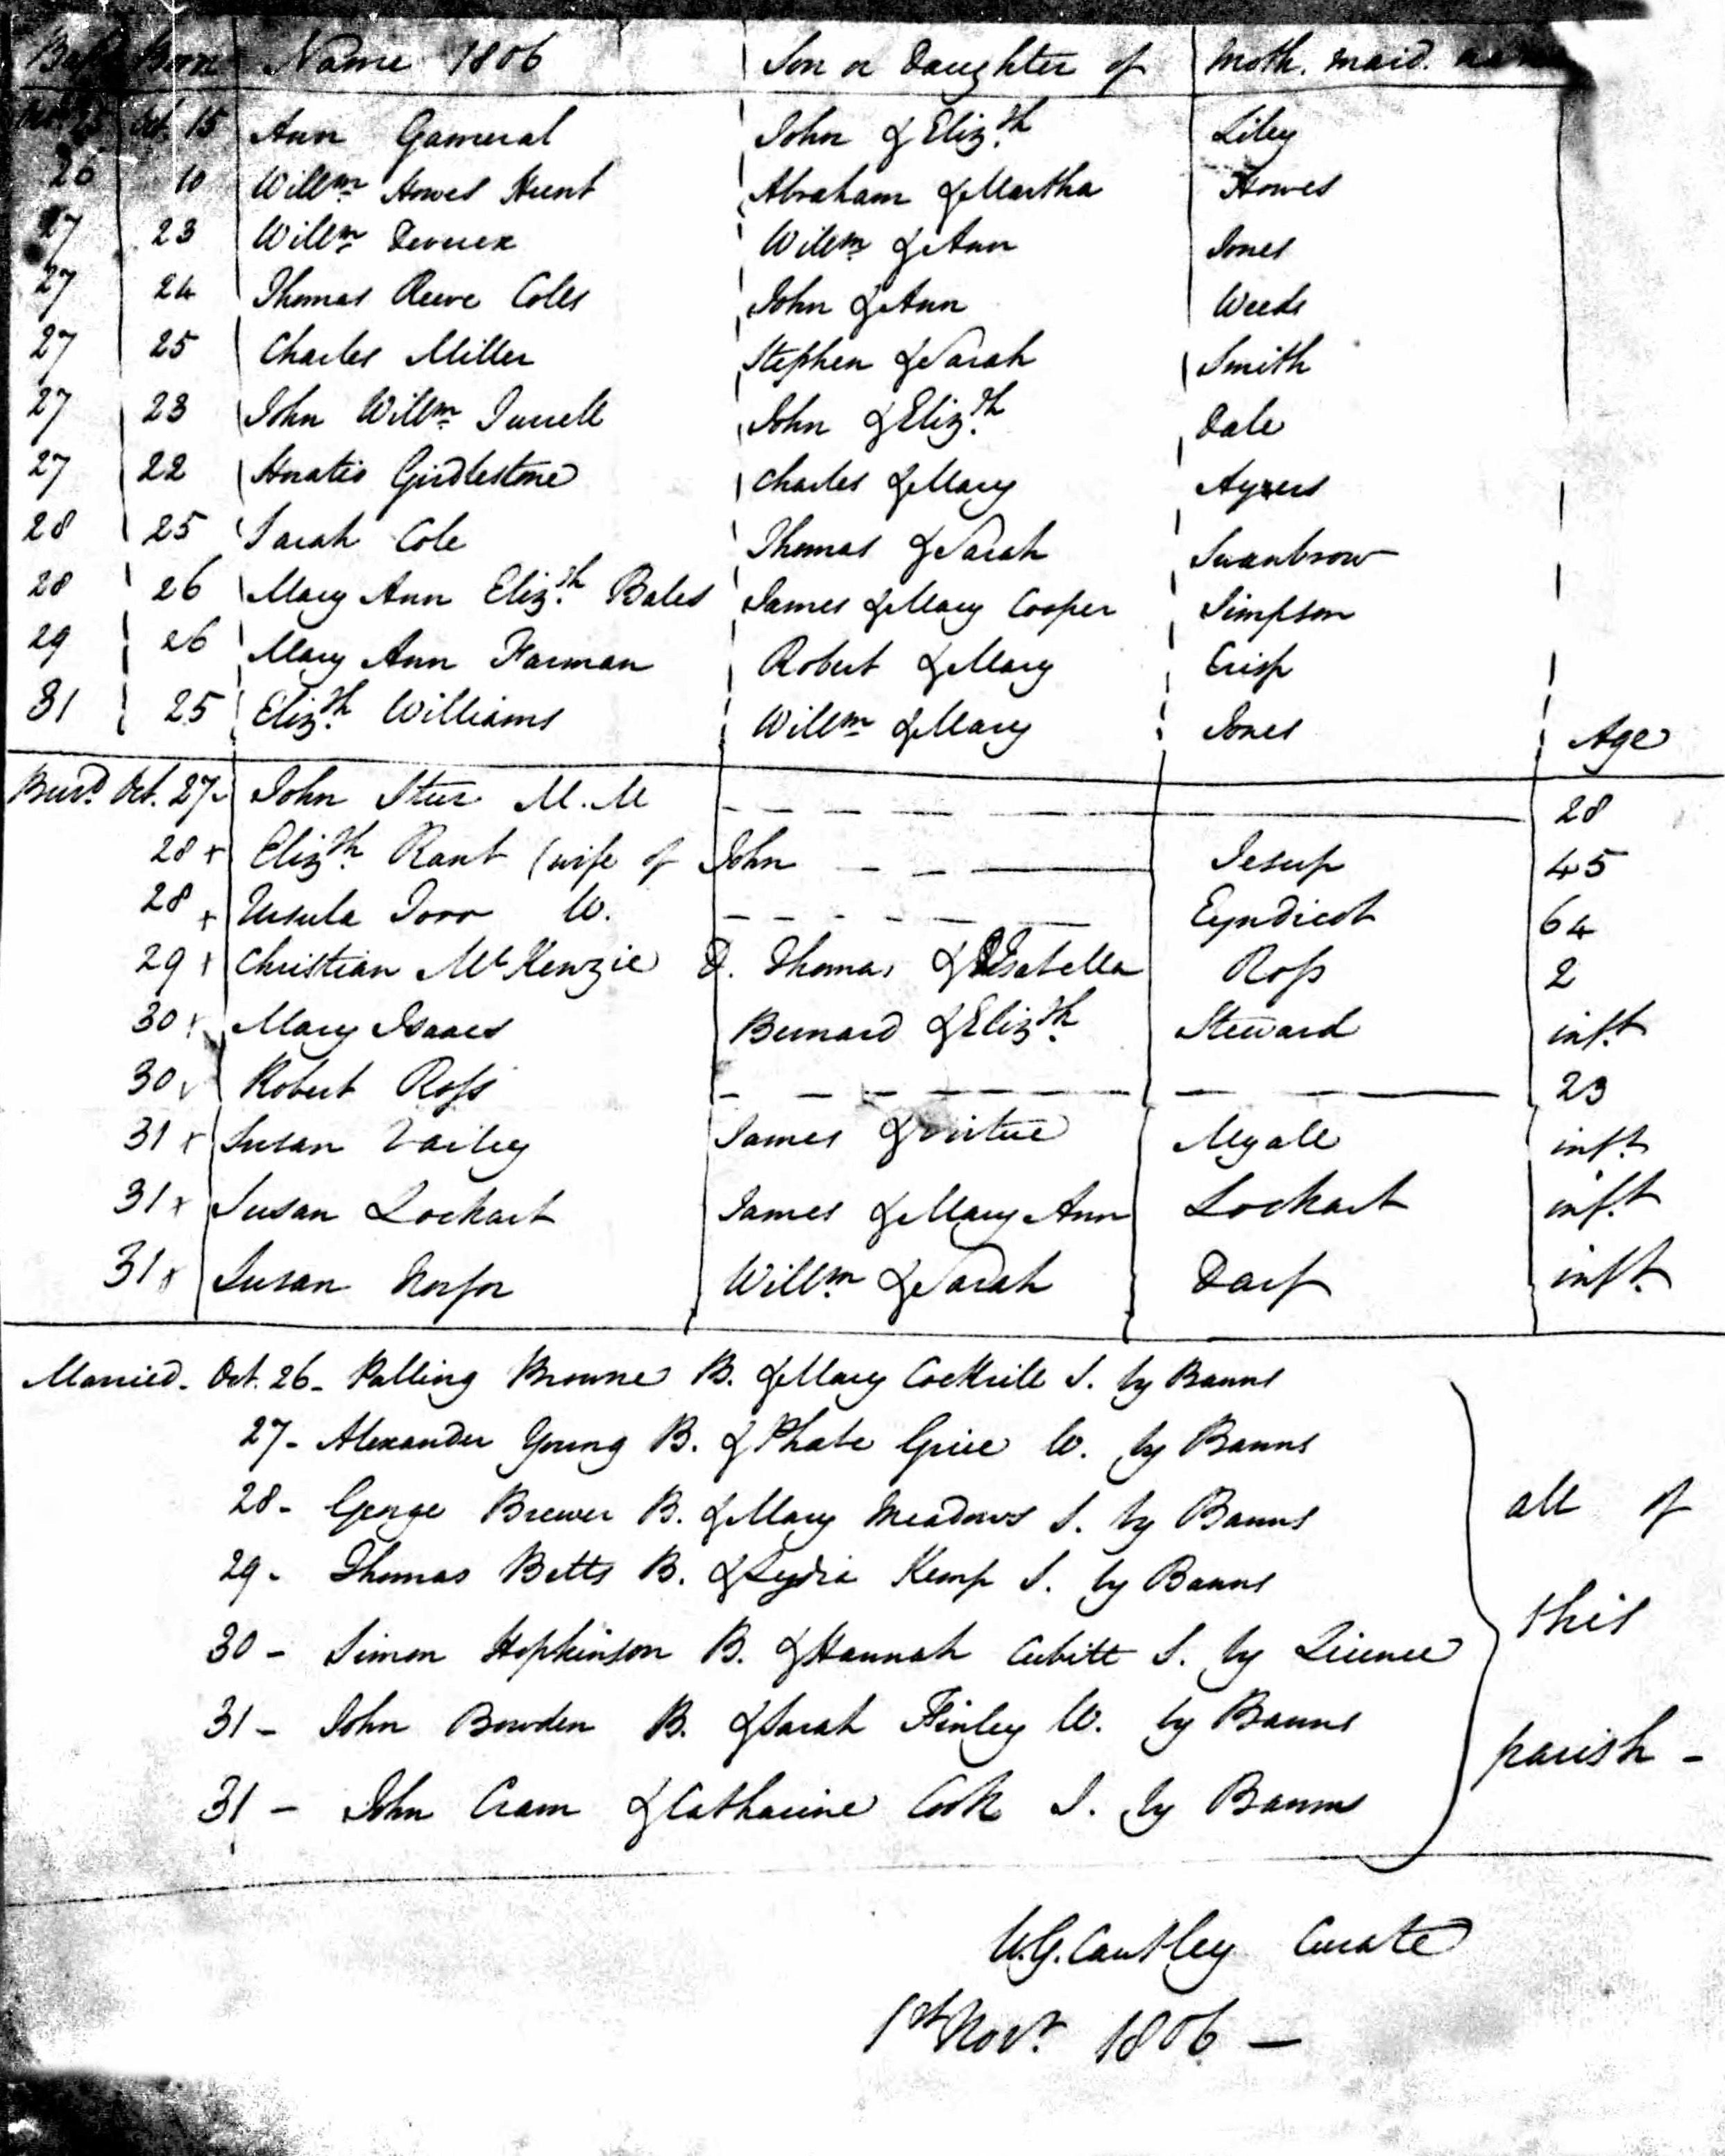 Bapt. Born Name 1806 Son or Daughter of Moth. maid. name
Oct. 15 Ann Gameral John & Eliz.th Liley
26 10 Willm Howes Hunt Abraham & Martha Howes
27 23 Willm Willm & Ann Jones
27 24 Thomas Reeve Coles John & Ann Weeds
27 25 Charles Miller Stephen & Sarah Smith
27 23 John Willm Turrell John & Eliz.th Dale
27 22 Horatio Girdlestone Charles & Mary Ayers
28 25 Sarah Cole Thomas & Sarah Swanbrow
28 26 Mary Ann Eliz.th Bales James & Mary Cooper Simpson
29 26 Mary Ann Harman Robert & Mary Crisp
31 25 Eliz.th Williams Willm & Mary Jones Age
Burd. Oct. 27 John M.M 28
28 x Eliz.th Rant (wife of John Jesup 45
28 x Ursula W. Eyndicot 64
29 x Christian McKenzie D. Thomas & Isabella Ross 2
30 x Mary Isaacs Bernard & Eliz.th Steward inf.t
30 Robert Ross 23
31 x Susan James & Virtue inf.t
31 x Susan Lockart James & Mary Ann Lockart inf.t
31 x Susan Norfor Willm & Sarah inf.t
Married. Oct. 26 - Palling Browne B. & Mary Cockrill S. by Banns
27 - Alexander Young B. & Phabe Grice W. by Banns
28 - George Brewer B. & Mary Meadows S. by Banns
29 - Thomas Betts B. & Lydia Kemp S. by Banns
30 - Simon Hopkinson B. & Hannah Cubitt S. by Licence
31 - John Bowden B. & Sarah Finley W. by Banns
31 - John Cram & Catharine Cook S. by Banns
all of
this
parish -
W.G. Cautley Curate
1st Novr. 1806 —